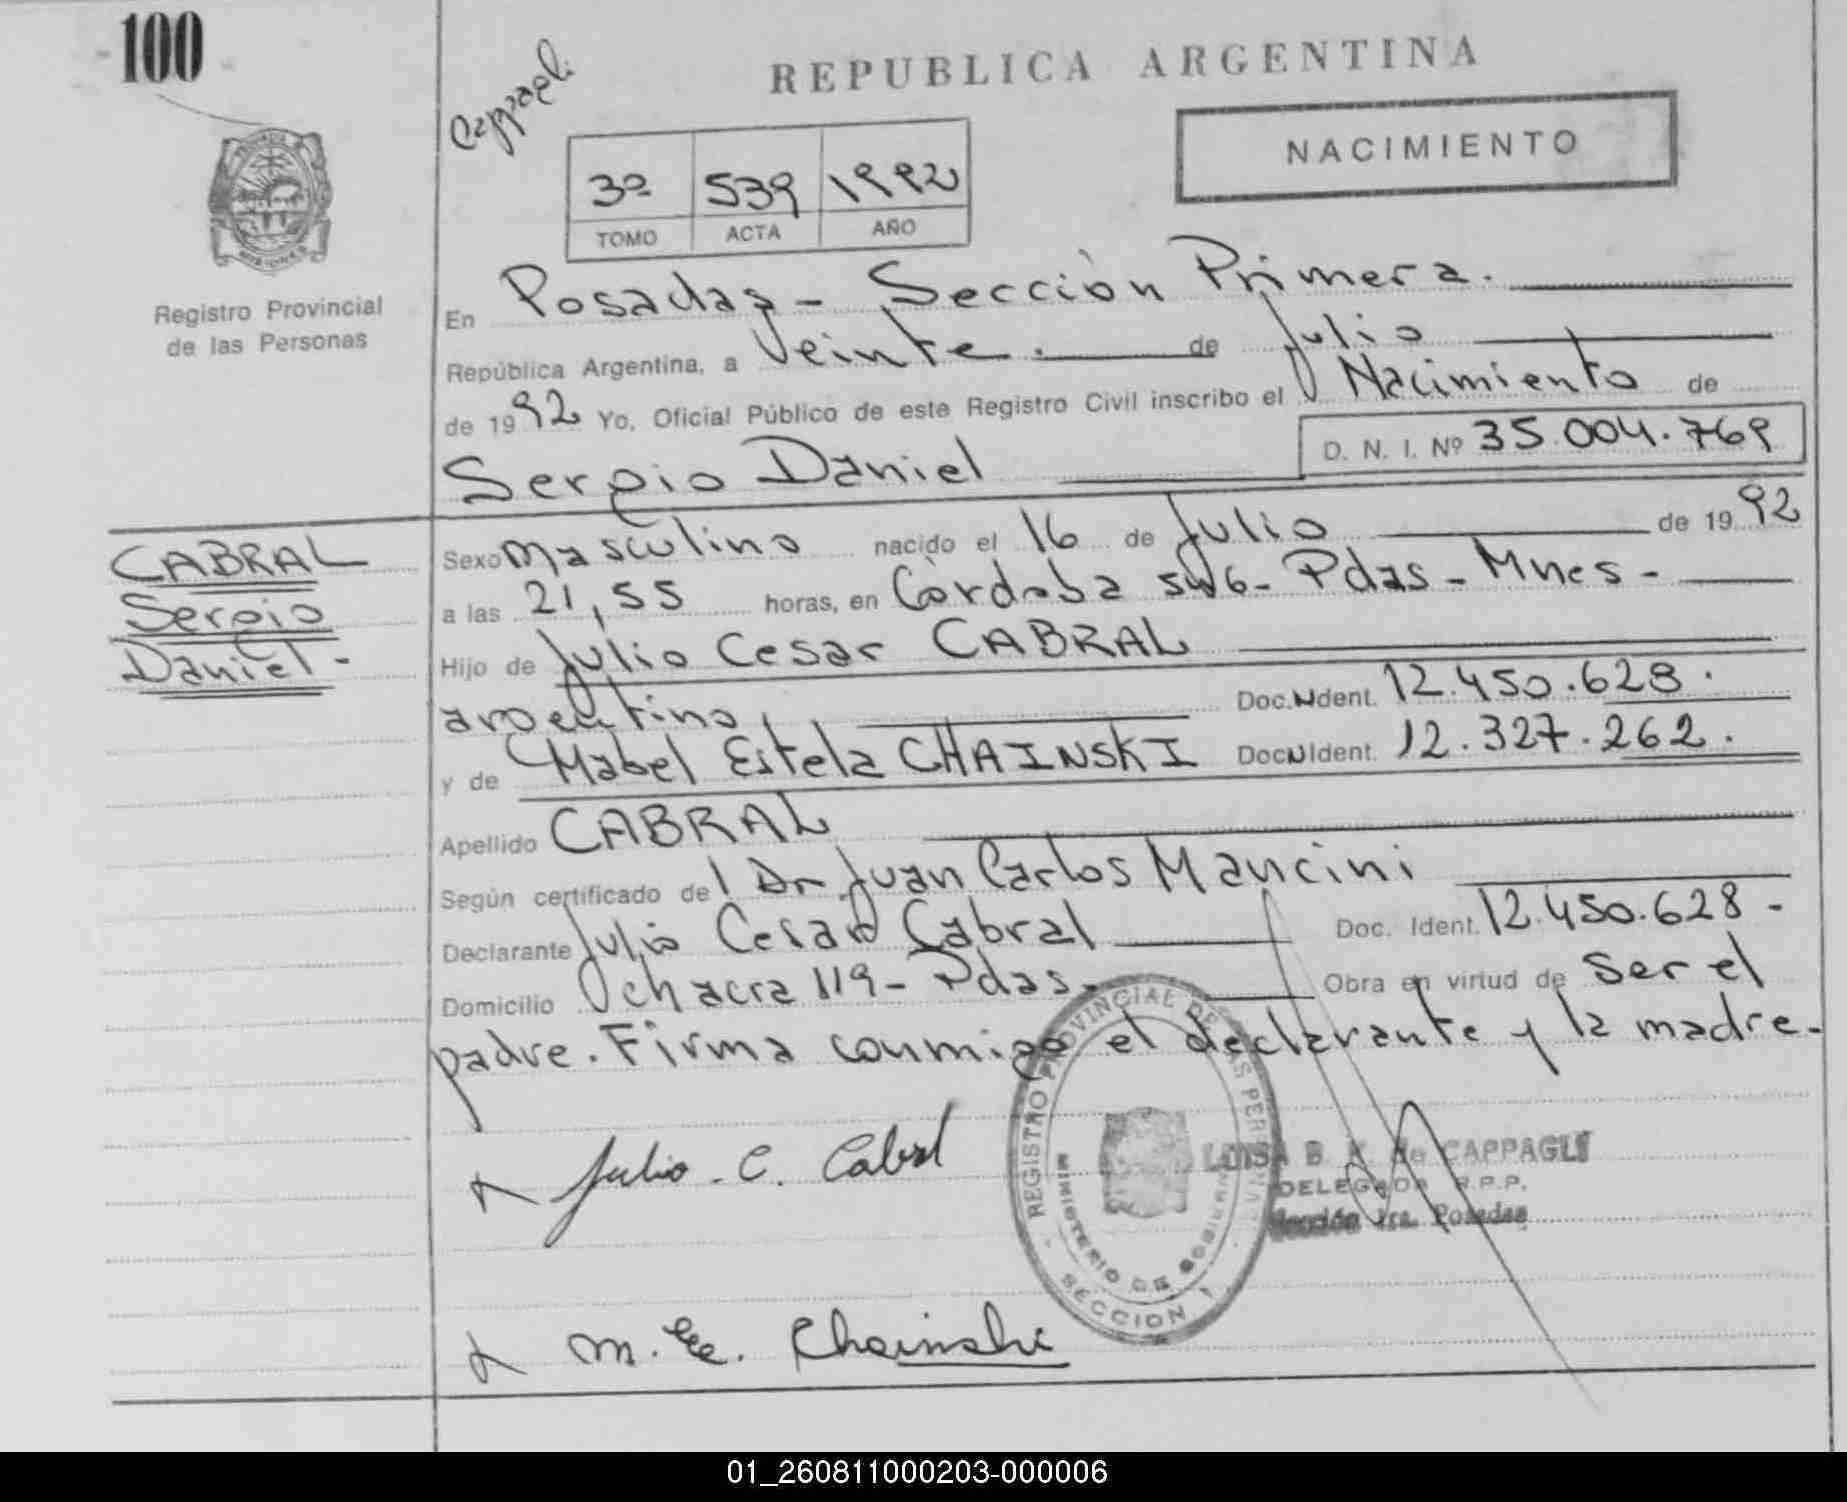 100
Cappagli
REPUBLICA ARGENTINA
NACIMIENTO
3º 539 1992
TOMO ACTA AÑO
Registro Provincial
de las Personas
En Posadas - Sección Primera.
República Argentina, a Veinte. de Julio
de 1992 Yo, Oficial Público de este Registro Civil inscribo el Nacimiento de
D. N. I. Nº 35.004.769
Sergio Daniel
CABRAL
Sergio
Daniel -
Sexo Masculino nacido el 16 de Julio de 1992
a las 21,55 horas, en Córdoba - Pdas - Mnes -
Hijo de Julio Cesar CABRAL
argentino, Doc. N Ident. 12.450.628.
y de Mabel Estela CHAINSKI Doc N Ident. 12.327.262.
Apellido CABRAL
Según certificado del Dr Juan Carlos Mancini
Declarante Julio Cesar Cabral Doc. Ident. 12.450.628 -
Domicilio chacra 119 - Pdas - Obra en virtud de ser el
padre. Firma conmigo el declarante y la madre -
Julio . C. Cabral
REGISTRO PROVINCIAL DE LAS PERSONAS
MINISTERIO DE GOBIERNO
SECCION 1
LUISA B. K. de CAPPAGLI
DELEGADA R.P.P.
Sección 1ra. Posadas
M. E. Chainski
01_260811000203-000006